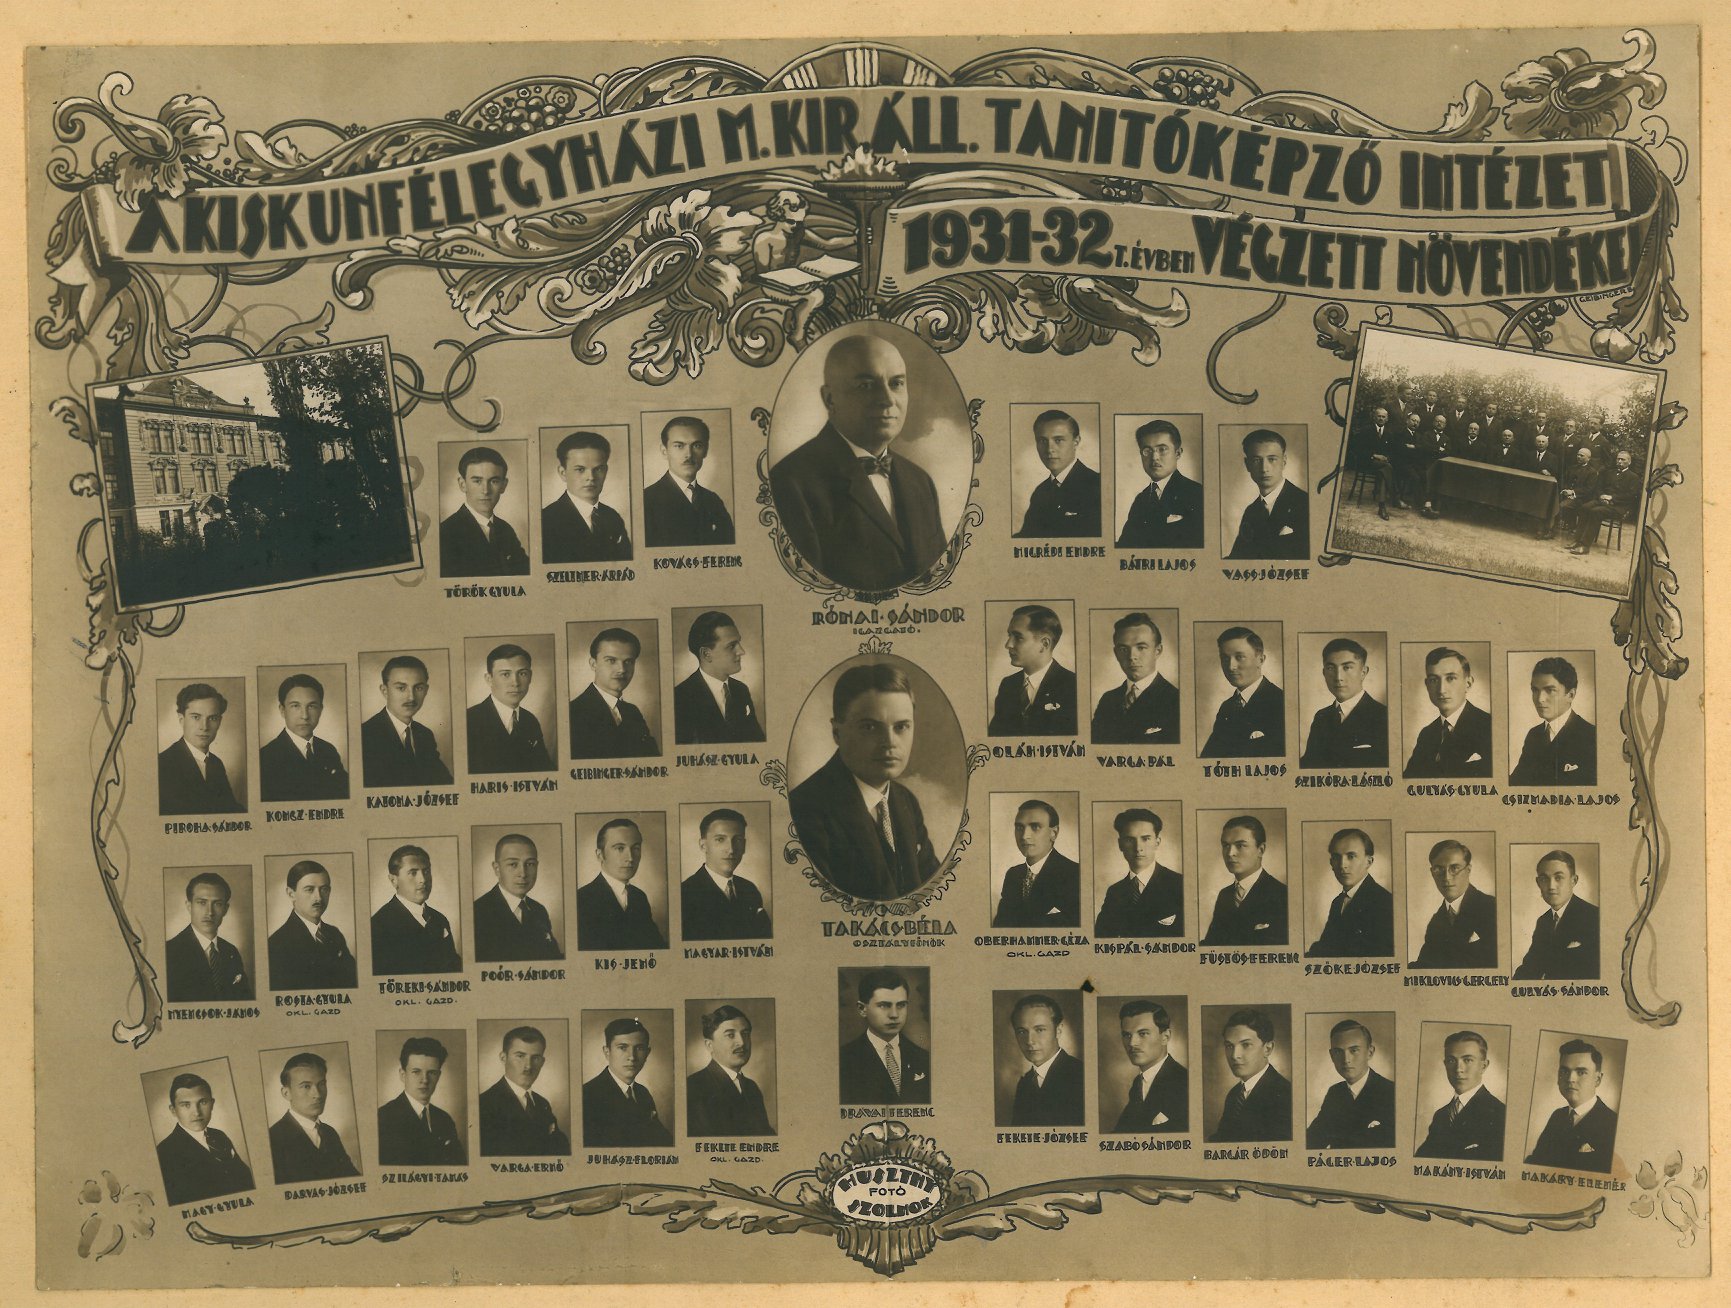 A KISKUNFÉLEGYHÁZI M. KIRÁLL. TANITÓKÉPZŐ INTÉZET
1931-32 T. ÉVBEN VÉGZETT NÖVENDÉKEI
GEIBINGER S.
TÖRÖK GYULA
SZELTNER·ÁRPÁD
KOVÁCS·FERENC
RÓNAI·SÁNDOR
IGAZGATÓ.
NIGRÉDI ENDRE
BÁTRI LAJOS
VASS·JÓZSEF
PIROHA·SÁNDOR
KONCZ·ENDRE
KATONA·JÓZSEF
HARIS·ISTVÁN
GEIBINGER·SÁNDOR
JUHÁSZ·GYULA
OLÁH·ISTVÁN
VARGA PÁL
TÓTH LAJOS
SZIKÓRA·LÁSZLÓ
GULYÁS·GYULA
CSIZMADIA·LAJOS
TAKÁCS·BÉLA
OSZTÁLYFŐNÖK
NYENCSOK·JÁNOS
ROSTA·GYULA
OKL. GAZD
TÖREKI·SÁNDOR
OKL. GAZD.
POÓR·SÁNDOR
KIS·JENŐ
MAGYAR·ISTVÁN
OBERHAMMER·GÉZA
OKL. GAZD
KISPÁL·SÁNDOR
FÜSTÖS·FERENC
SZŐKE JÓZSEF
MIKLOVIS GERGELY
GULYÁS·SÁNDOR
NAGY·GYULA
DARVAS·JÓZSEF
SZILÁGYI·TAMÁS
VARGA·ERNŐ
JUHÁSZ·FLORIÁN
FEKETE ENDRE
OKL. GAZD.
DRÁVAI FERENC
FEKETE·JÓZSEF
SZABÓ SÁNDOR
BARCÁR ÖDÖN
PÁGER·LAJOS
MAKÁNY·ISTVÁN
MAKÁRY·ELEMÉR
MUSZTHY
FOTÓ
SZOLNOK